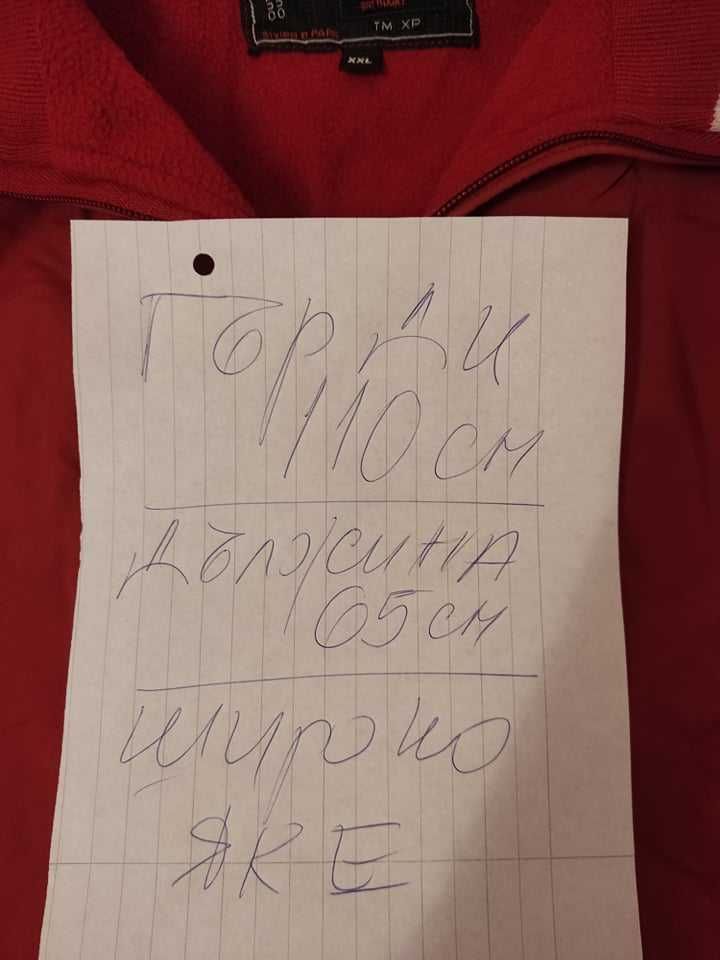 00
TM XP
XXL
ГЪРДИ
110 см
ДЪЛЖИНА
65 см
широко
ЯКЕ